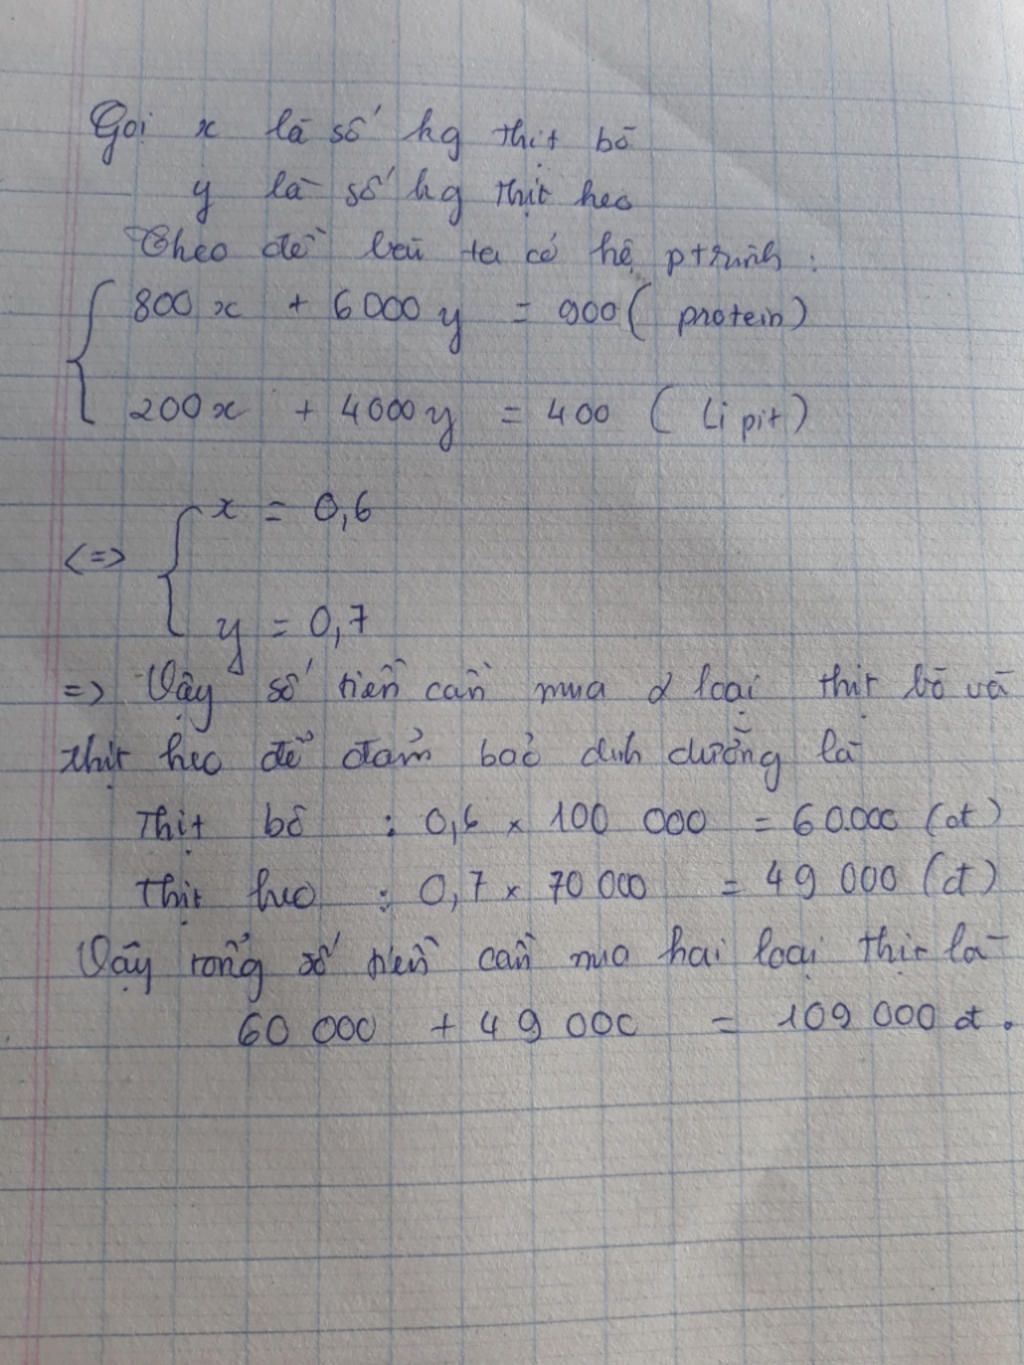 Gọi x là số kg thịt bò
y là số kg thịt heo
Theo đề bài ta có hệ ptrình :
800x + 6000y = 900 ( protein)
200x + 4000y = 400 ( Lipit)
<=> x = 0,6
y = 0,7
=> Vậy số tiền cần mua 2 loại thịt bò và
thịt heo để đảm bảo dinh dưỡng là
Thịt bò : 0,6 x 100 000 = 60.000 (đ)
Thịt heo : 0,7 x 70 000 = 49 000 (đ)
Vậy tổng số tiền cần mua hai loại thịt là
60 000 + 49 000 = 109 000 đ.